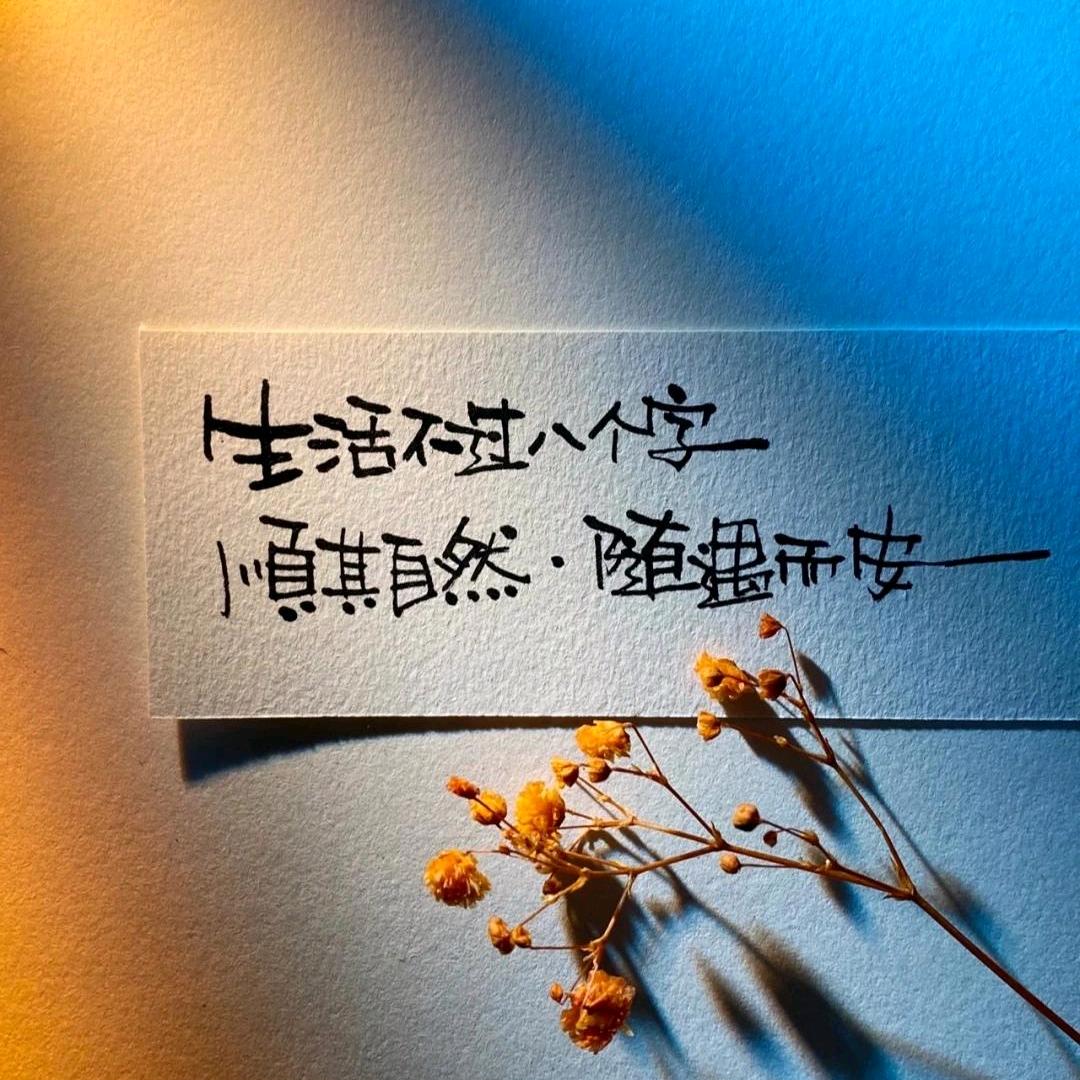 生活不过八个字
順其自然·随遇而安